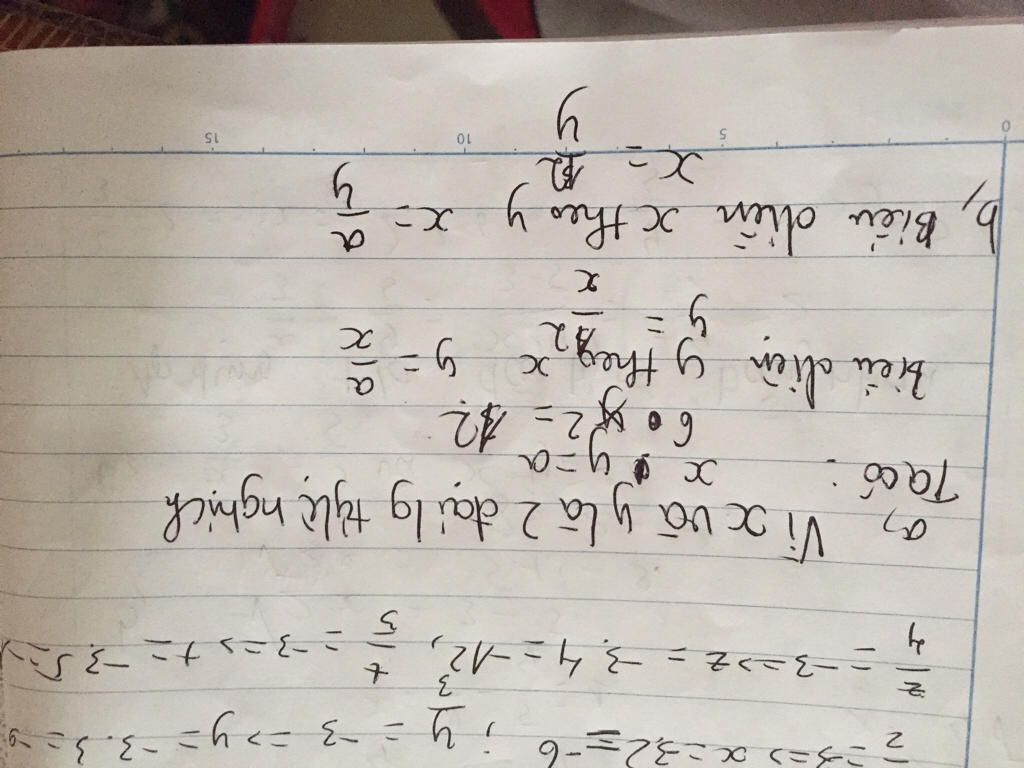 /2 = -3 => x = -3.2 = -6 ; y/3 = -3 => y = -3.3 = -9
z/4 = -3 => z = -3.4 = -12, t/5 = -3 => t = -3.5 =
a, Vì x và y là 2 đại lg tỷ lệ nghịch
Ta có : x . y = a
6 . 2 = 12
Biểu diễn y theo x y = a/x
y = 12/x
b, Biểu diễn x theo y x = a/y
x = 12/y
0 5 10 15